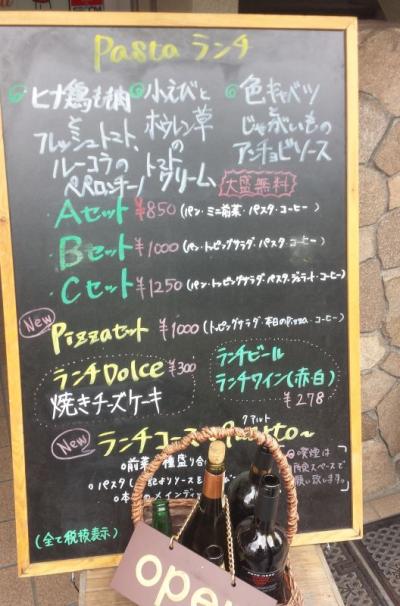 Pasta ランチ
ヒナ鶏もも肉
と
フレッシュトマト、
ルーコラの
ペペロンチーノ
小えびと
ホウレン草
の
トマト
クリーム
色キャベツ
じゃがいもの
アンチョビソース
大盛無料
・Aセット ¥850 (パン・ミニ前菜・パスタ・コーヒー)
・Bセット ¥1000 (パン・トッピングサラダ・パスタ・コーヒー)
・Cセット ¥1250 (パン・トッピングサラダ・パスタ・ジェラート・コーヒー)
New
Pizzaセット ¥1000 (トッピングサラダ・本日のPizza・コーヒー)
ランチDolce ¥300
焼きチーズケーキ
ランチビール
ランチワイン(赤・白)
¥278
New
ランチコース
クアルト
○前菜 種盛り合
○パスタ ソースを
○本 のメインディ
喫煙は
スペースで
願い致します。
(全て税抜表示)
ope